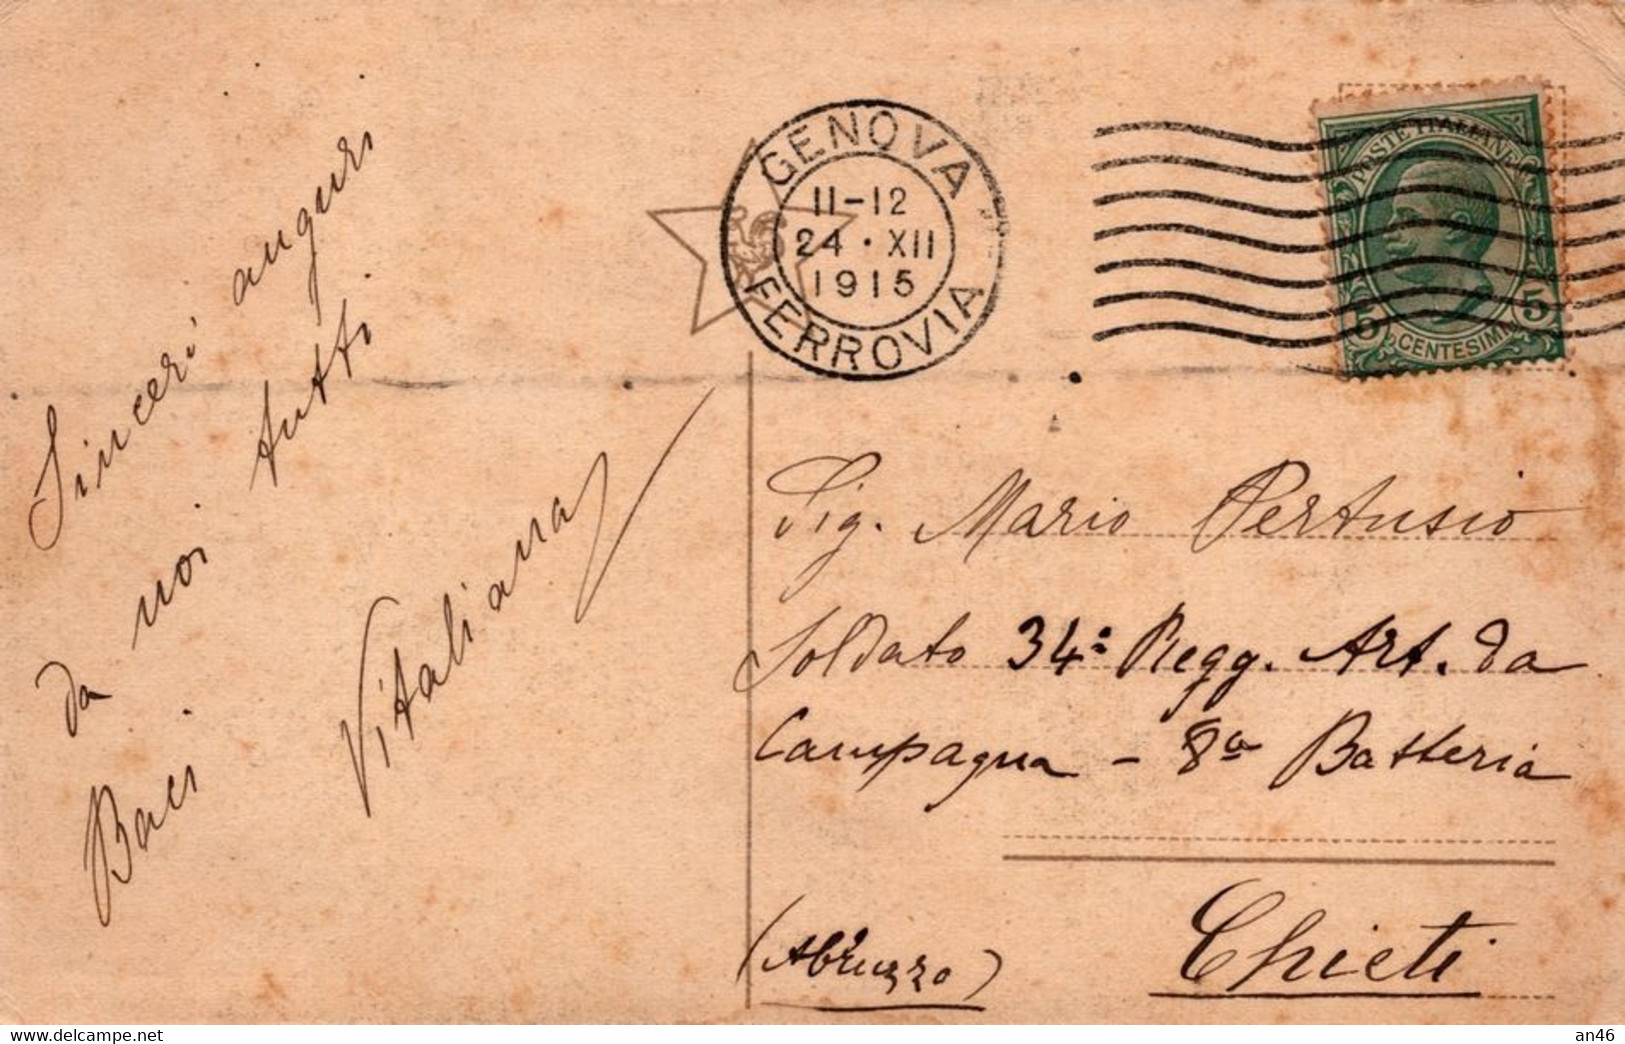 Sinceri auguri
da noi tutti
Baci
Vitaliana
GENOVA
11-12
24 · XII
1915
FERROVIA
POSTE ITALIANE
5 5
CENTESIMI
Sig. Mario Pertusio
Soldato 34º Regg. Art. da
Campagna - 8a Batteria
(Abruzzo) Chieti
www.delcampe.net
an46